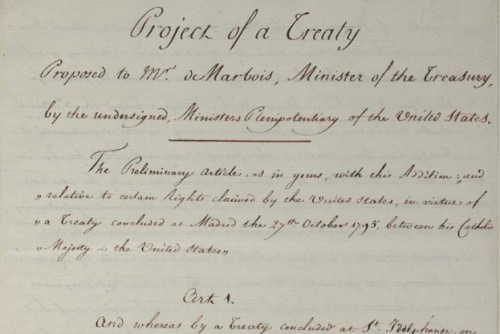 Project of a Treaty
Proposed to Mr. de Marbois, Minister of the Treasury,
by the undersigned, Ministers Plenipotentiary of the United States.
The Preliminary article, as in yours, with this Addition; "and
" relative to certain Rights claimed by the United States, in virtue of
" a Treaty concluded at Madrid the 27th October 1795, between his Catholic
" Majesty & the United States "
Art 1.
And whereas by a Treaty concluded at St. Idelphonse, on